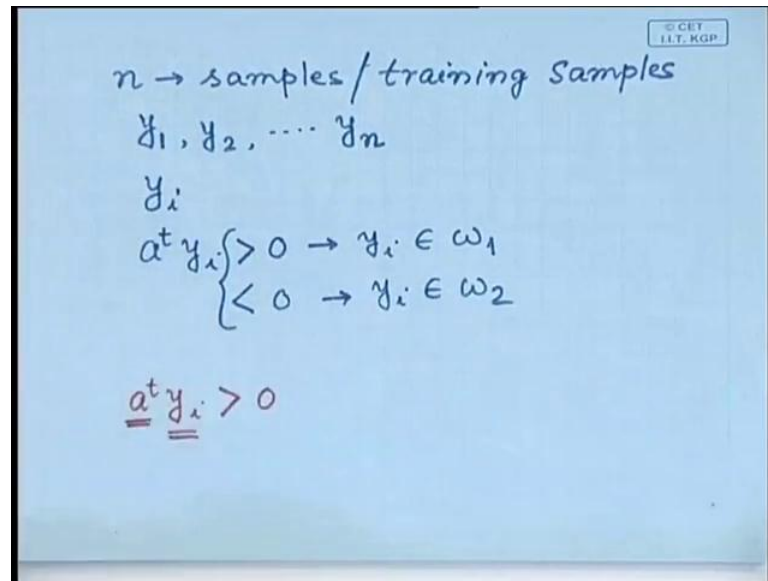 © CET
I.I.T. KGP
n → samples / training samples
y₁, y₂, .... yₙ
yᵢ
aᵗ yᵢ { > 0 → yᵢ ∈ ω₁
< 0 → yᵢ ∈ ω₂
aᵗ yᵢ > 0